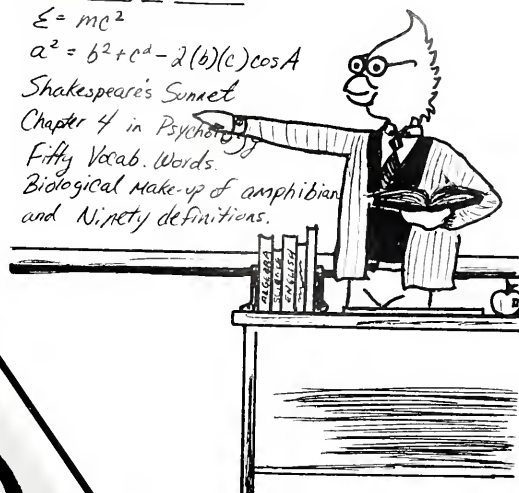 E = mc²
a² = b² + c² - 2(b)(c) cos A
Shakespeare's Sunnet
Chapter 4 in Psychology
Fifty Vocab. Words.
Biological Make-up of amphibian
and Ninety definitions.
ALGEBRA
SCIENCE
ENGLISH